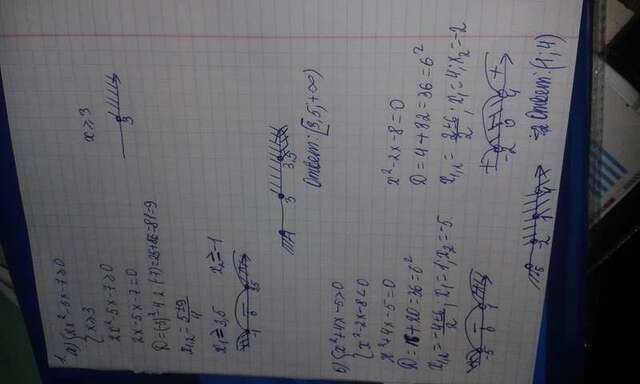 1.
а) {2x²-5x-7≥0
{x≥3
2x²-5x-7≥0
2x-5x-7=0
D=(-5)²-4·2·(-7)=25+56=81=9
x₁,₂=5±9/4
x₁=3,5 x₂=-1
-1 0 3,5
x≥3
3
3 3,5
Ответ: [3,5; +∞)
б) {x²+4x-5>0
{x²-2x-8<0
x²+4x-5=0
D=16+20=36=6²
x₁,₂=-4±6/2, x₁=1; x₂=-5
-5 0 1
x²-2x-8=0
D=4+32=36=6²
x₁,₂=2±6/2, x₁=4; x₂=-2
+ - +
-2 0 4
-5 -2 1 4
Ответ: (1; 4)